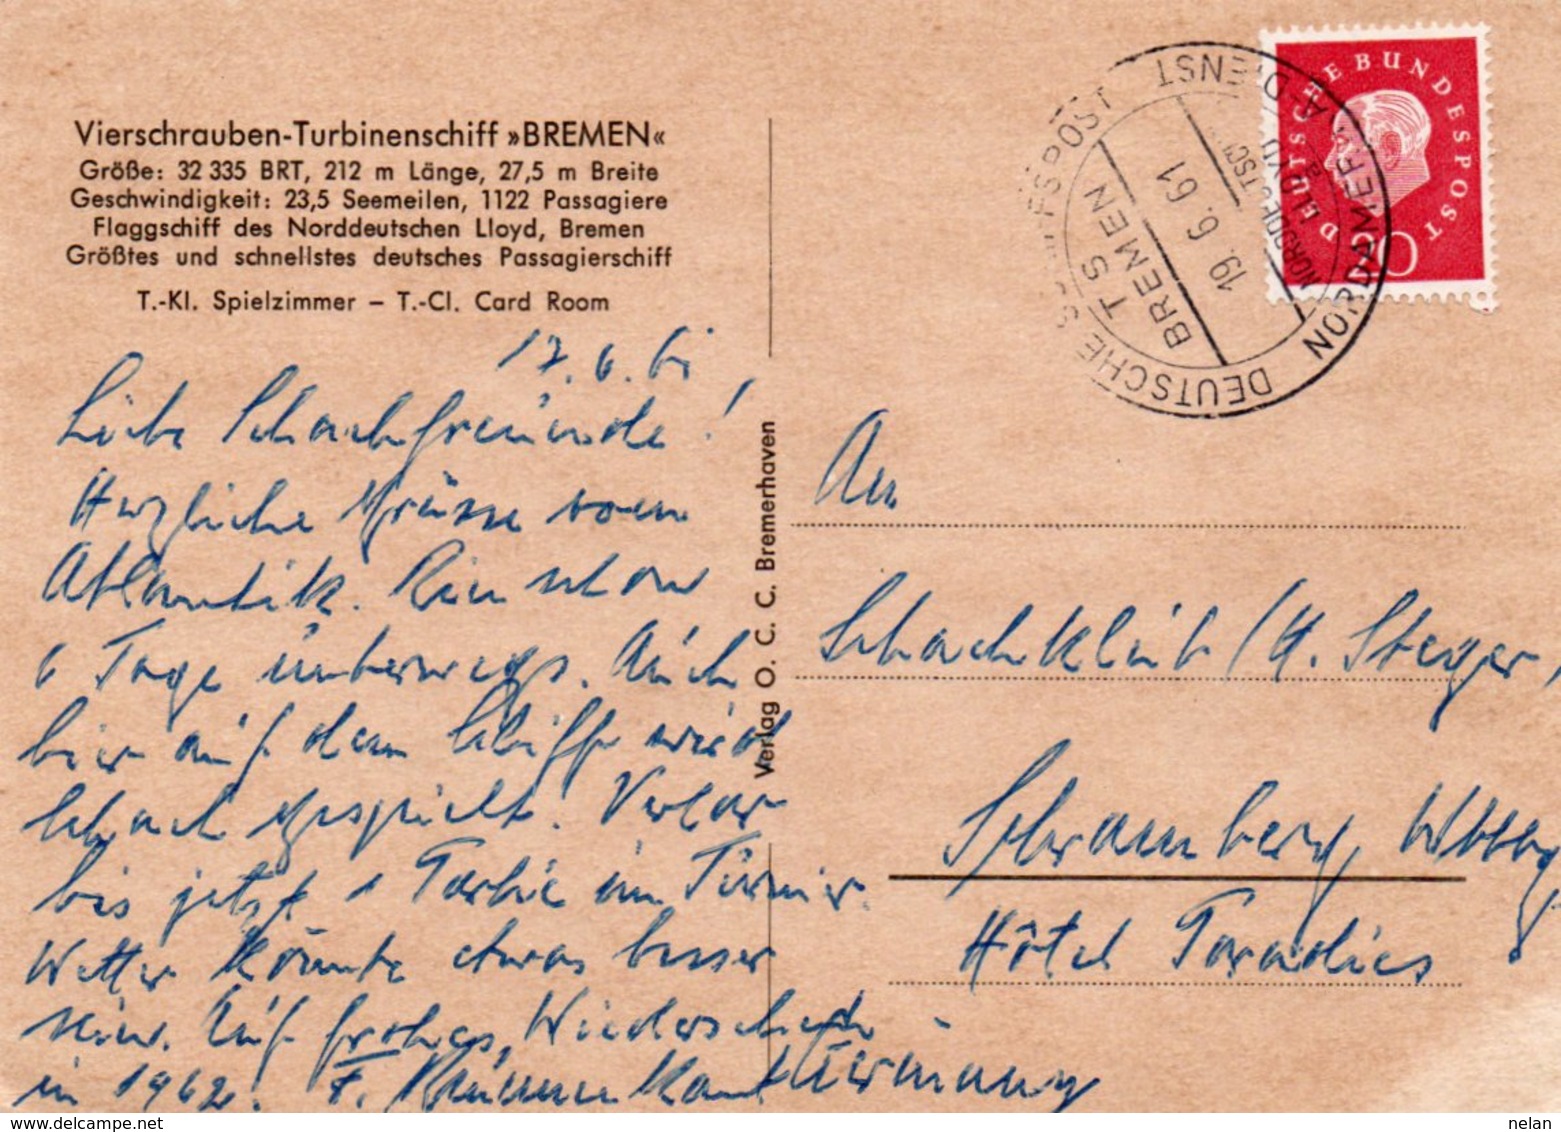 Vierschrauben-Turbinenschiff »BREMEN«
Größe: 32 335 BRT, 212 m Länge, 27,5 m Breite
Geschwindigkeit: 23,5 Seemeilen, 1122 Passagiere
Flaggschiff des Norddeutschen Lloyd, Bremen
Größtes und schnellstes deutsches Passagierschiff
T.-Kl. Spielzimmer – T.-Cl. Card Room
17.6.61
Liebe Schachfreunde!
Herzliche Grüsse vom
Atlantik. Bin schon
6 Tage unterwegs. Auch
hier auf dem Schiffe wird
Schach gespielt. Verlor
bis jetzt 1 Partie im Turnier.
Wetter könnte etwas besser
sein. Auf frohes Wiedersehen
in 1962! F.
Germany
Verlag O. C. C. Bremerhaven
An
Schachklub / H. Steger,
Schramberg, Württbg
Hôtel Paradies
DEUTSCHE SCHIFFSPOST
TS
BREMEN
19. 6. 61
NORDDEUTSCHER
LLOYD
NORDAMERIKA-DIENST
DEUTSCHE BUNDESPOST
nelan
delcampe.net